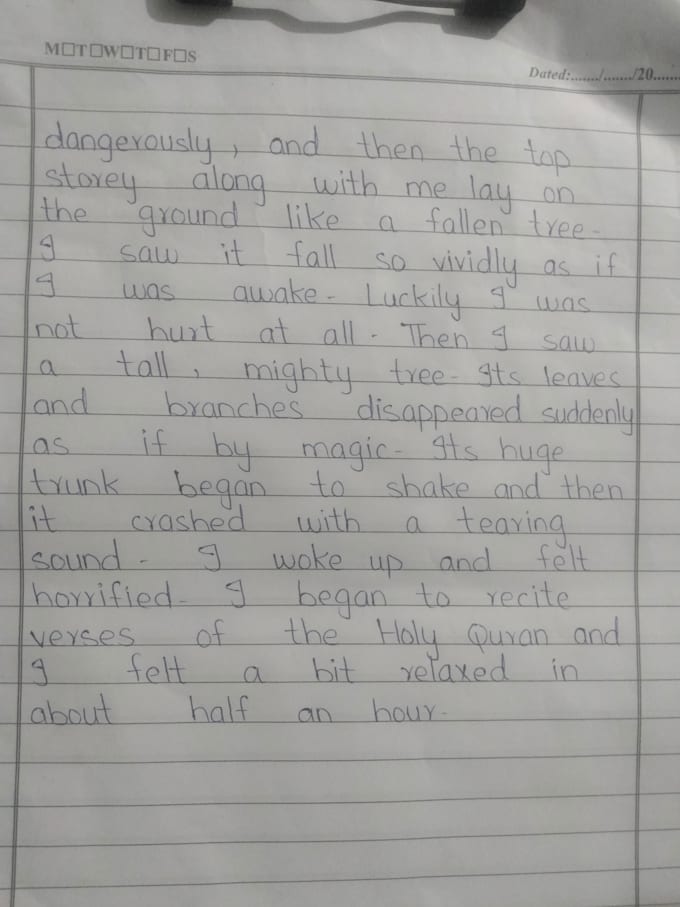 M□T□W□T□F□S
Dated:......./......./20.......
dangerously, and then the top
storey along with me lay on
the ground like a fallen tree.
I saw it fall so vividly as if
I was awake. Luckily I was
not hurt at all. Then I saw
a tall, mighty tree. Its leaves
and branches disappeared suddenly
as if by magic. Its huge
trunk began to shake and then
it crashed with a tearing
sound. I woke up and felt
horrified. I began to recite
verses of the Holy Quran and
I felt a bit relaxed in
about half an hour.